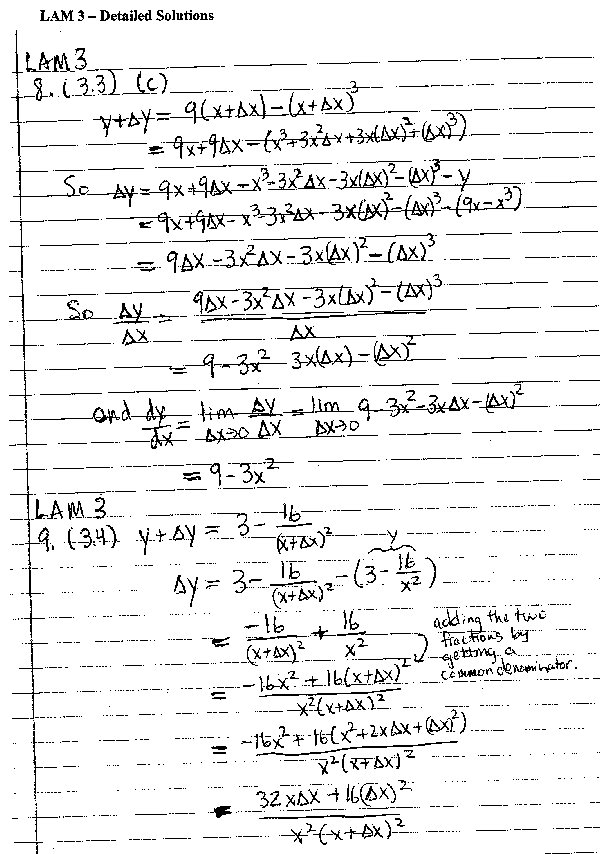 LAM 3 – Detailed Solutions
LAM 3
8. (3.3) (c)
y+Δy = 9(x+Δx) - (x+Δx)³
= 9x+9Δx - (x³+3x²Δx+3x(Δx)²+(Δx)³)
So Δy = 9x+9Δx - x³-3x²Δx-3x(Δx)²-(Δx)³-y
= 9x+9Δx-x³-3x²Δx-3x(Δx)²-(Δx)³-(9x-x³)
= 9Δx-3x²Δx-3x(Δx)²-(Δx)³
So Δy/Δx = (9Δx-3x²Δx-3x(Δx)²-(Δx)³)/Δx
= 9-3x² 3x(Δx)-(Δx)²
and dy/dx = lim Δx→0 Δy/Δx = lim Δx→0 9-3x²-3xΔx-(Δx)²
= 9-3x²
LAM 3
9. (3.4) y+Δy = 3 - 16/(x+Δx)²
y
Δy = 3 - 16/(x+Δx)² - (3 - 16/x²)
= -16/(x+Δx)² + 16/x²
adding the two
fractions by
getting a
common denominator.
= (-16x² + 16(x+Δx)²)/(x²(x+Δx)²)
= (-16x² + 16(x²+2xΔx+(Δx)²))/(x²(x+Δx)²)
= (32xΔx + 16(Δx)²)/(x²(x+Δx)²)